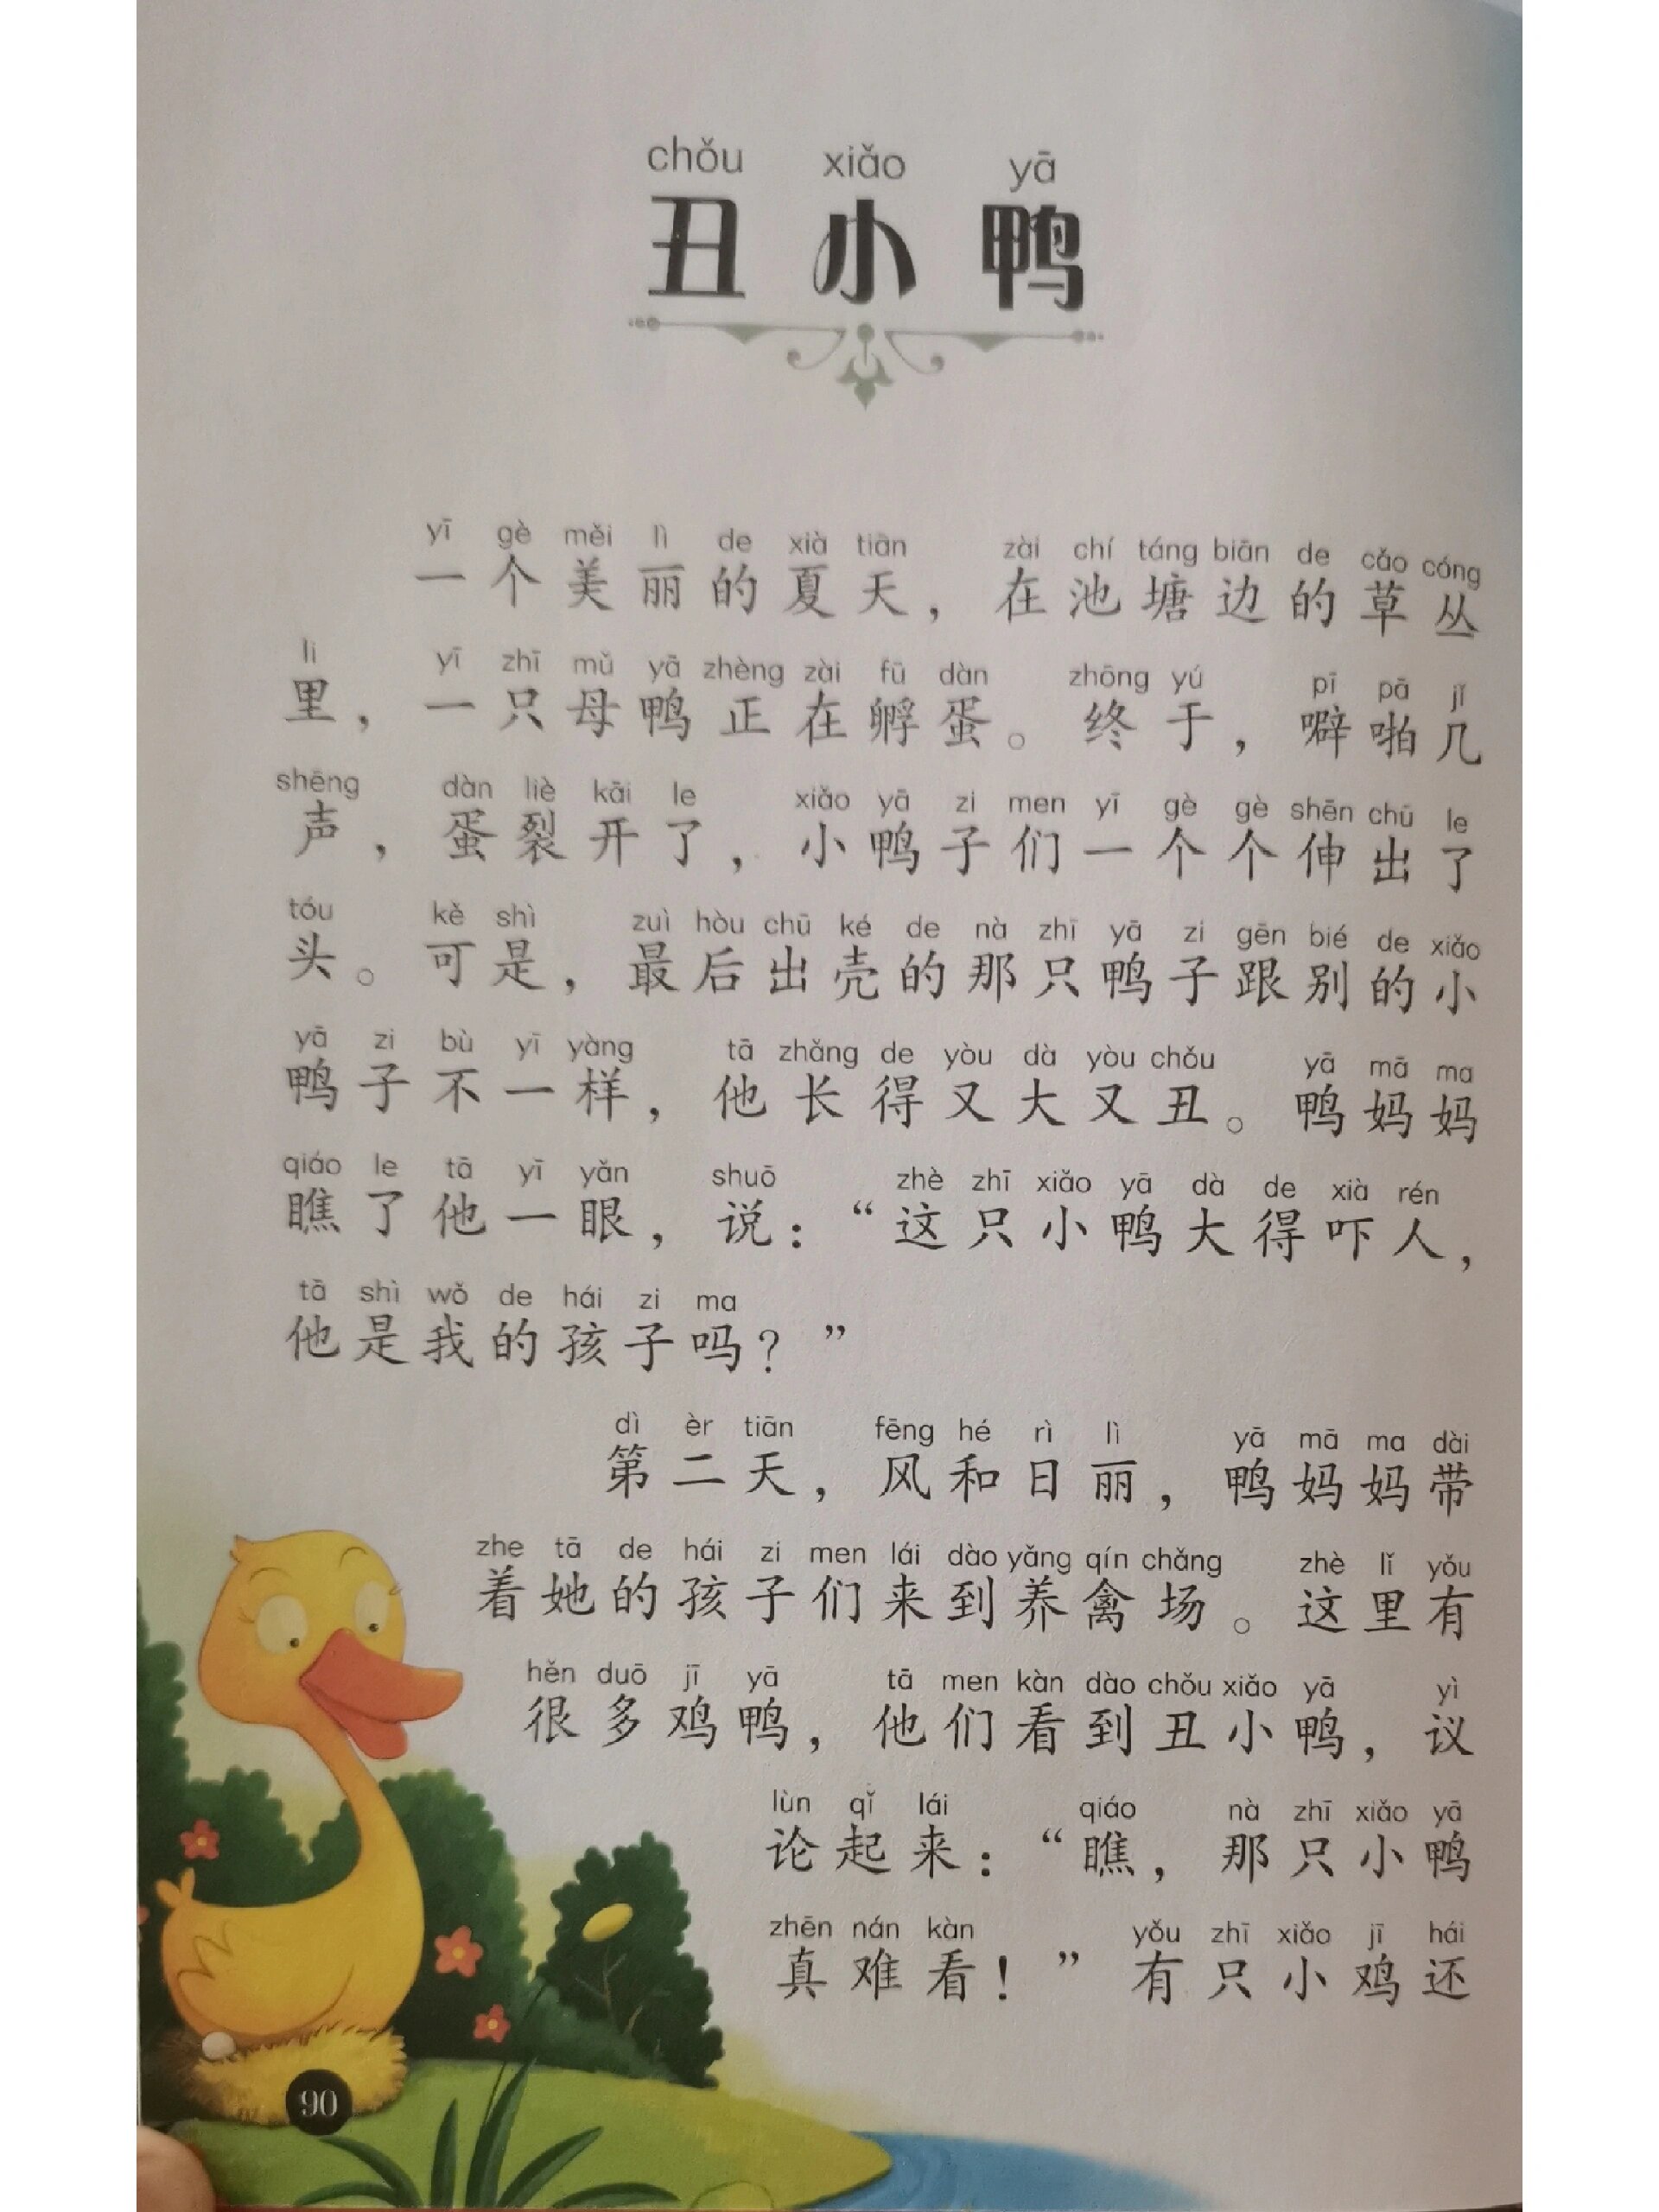 chǒu xiǎo yā
丑小鸭
yī gè měi lì de xià tiān zài chí táng biān de cǎo cóng
一个美丽的夏天，在池塘边的草丛
li yī zhī mǔ yā zhèng zài fū dàn zhōng yú pī pā jǐ
里，一只母鸭正在孵蛋。终于，噼啪几
shēng dàn liè kāi le xiǎo yā zi men yī gè gè shēn chū le
声，蛋裂开了，小鸭子们一个个伸出了
tóu kě shì zuì hòu chū ké de nà zhī yā zi gēn bié de xiǎo
头。可是，最后出壳的那只鸭子跟别的小
yā zi bù yī yàng tā zhǎng de yòu dà yòu chǒu yā mā ma
鸭子不一样，他长得又大又丑。鸭妈妈
qiáo le tā yī yǎn shuō zhè zhī xiǎo yā dà de xià rén
瞧了他一眼，说：“这只小鸭大得吓人，
tā shì wǒ de hái zi ma
他是我的孩子吗？”
dì èr tiān fēng hé rì lì yā mā ma dài
第二天，风和日丽，鸭妈妈带
zhe tā de hái zi men lái dào yǎng qín chǎng zhè lǐ yǒu
着她的孩子们来到养禽场。这里有
hěn duō jī yā tā men kàn dào chǒu xiǎo yā yì
很多鸡鸭，他们看到丑小鸭，议
lùn qǐ lái qiáo nà zhī xiǎo yā
论起来：“瞧，那只小鸭
zhēn nán kàn yǒu zhī xiǎo jī hái
真难看！”有只小鸡还
90